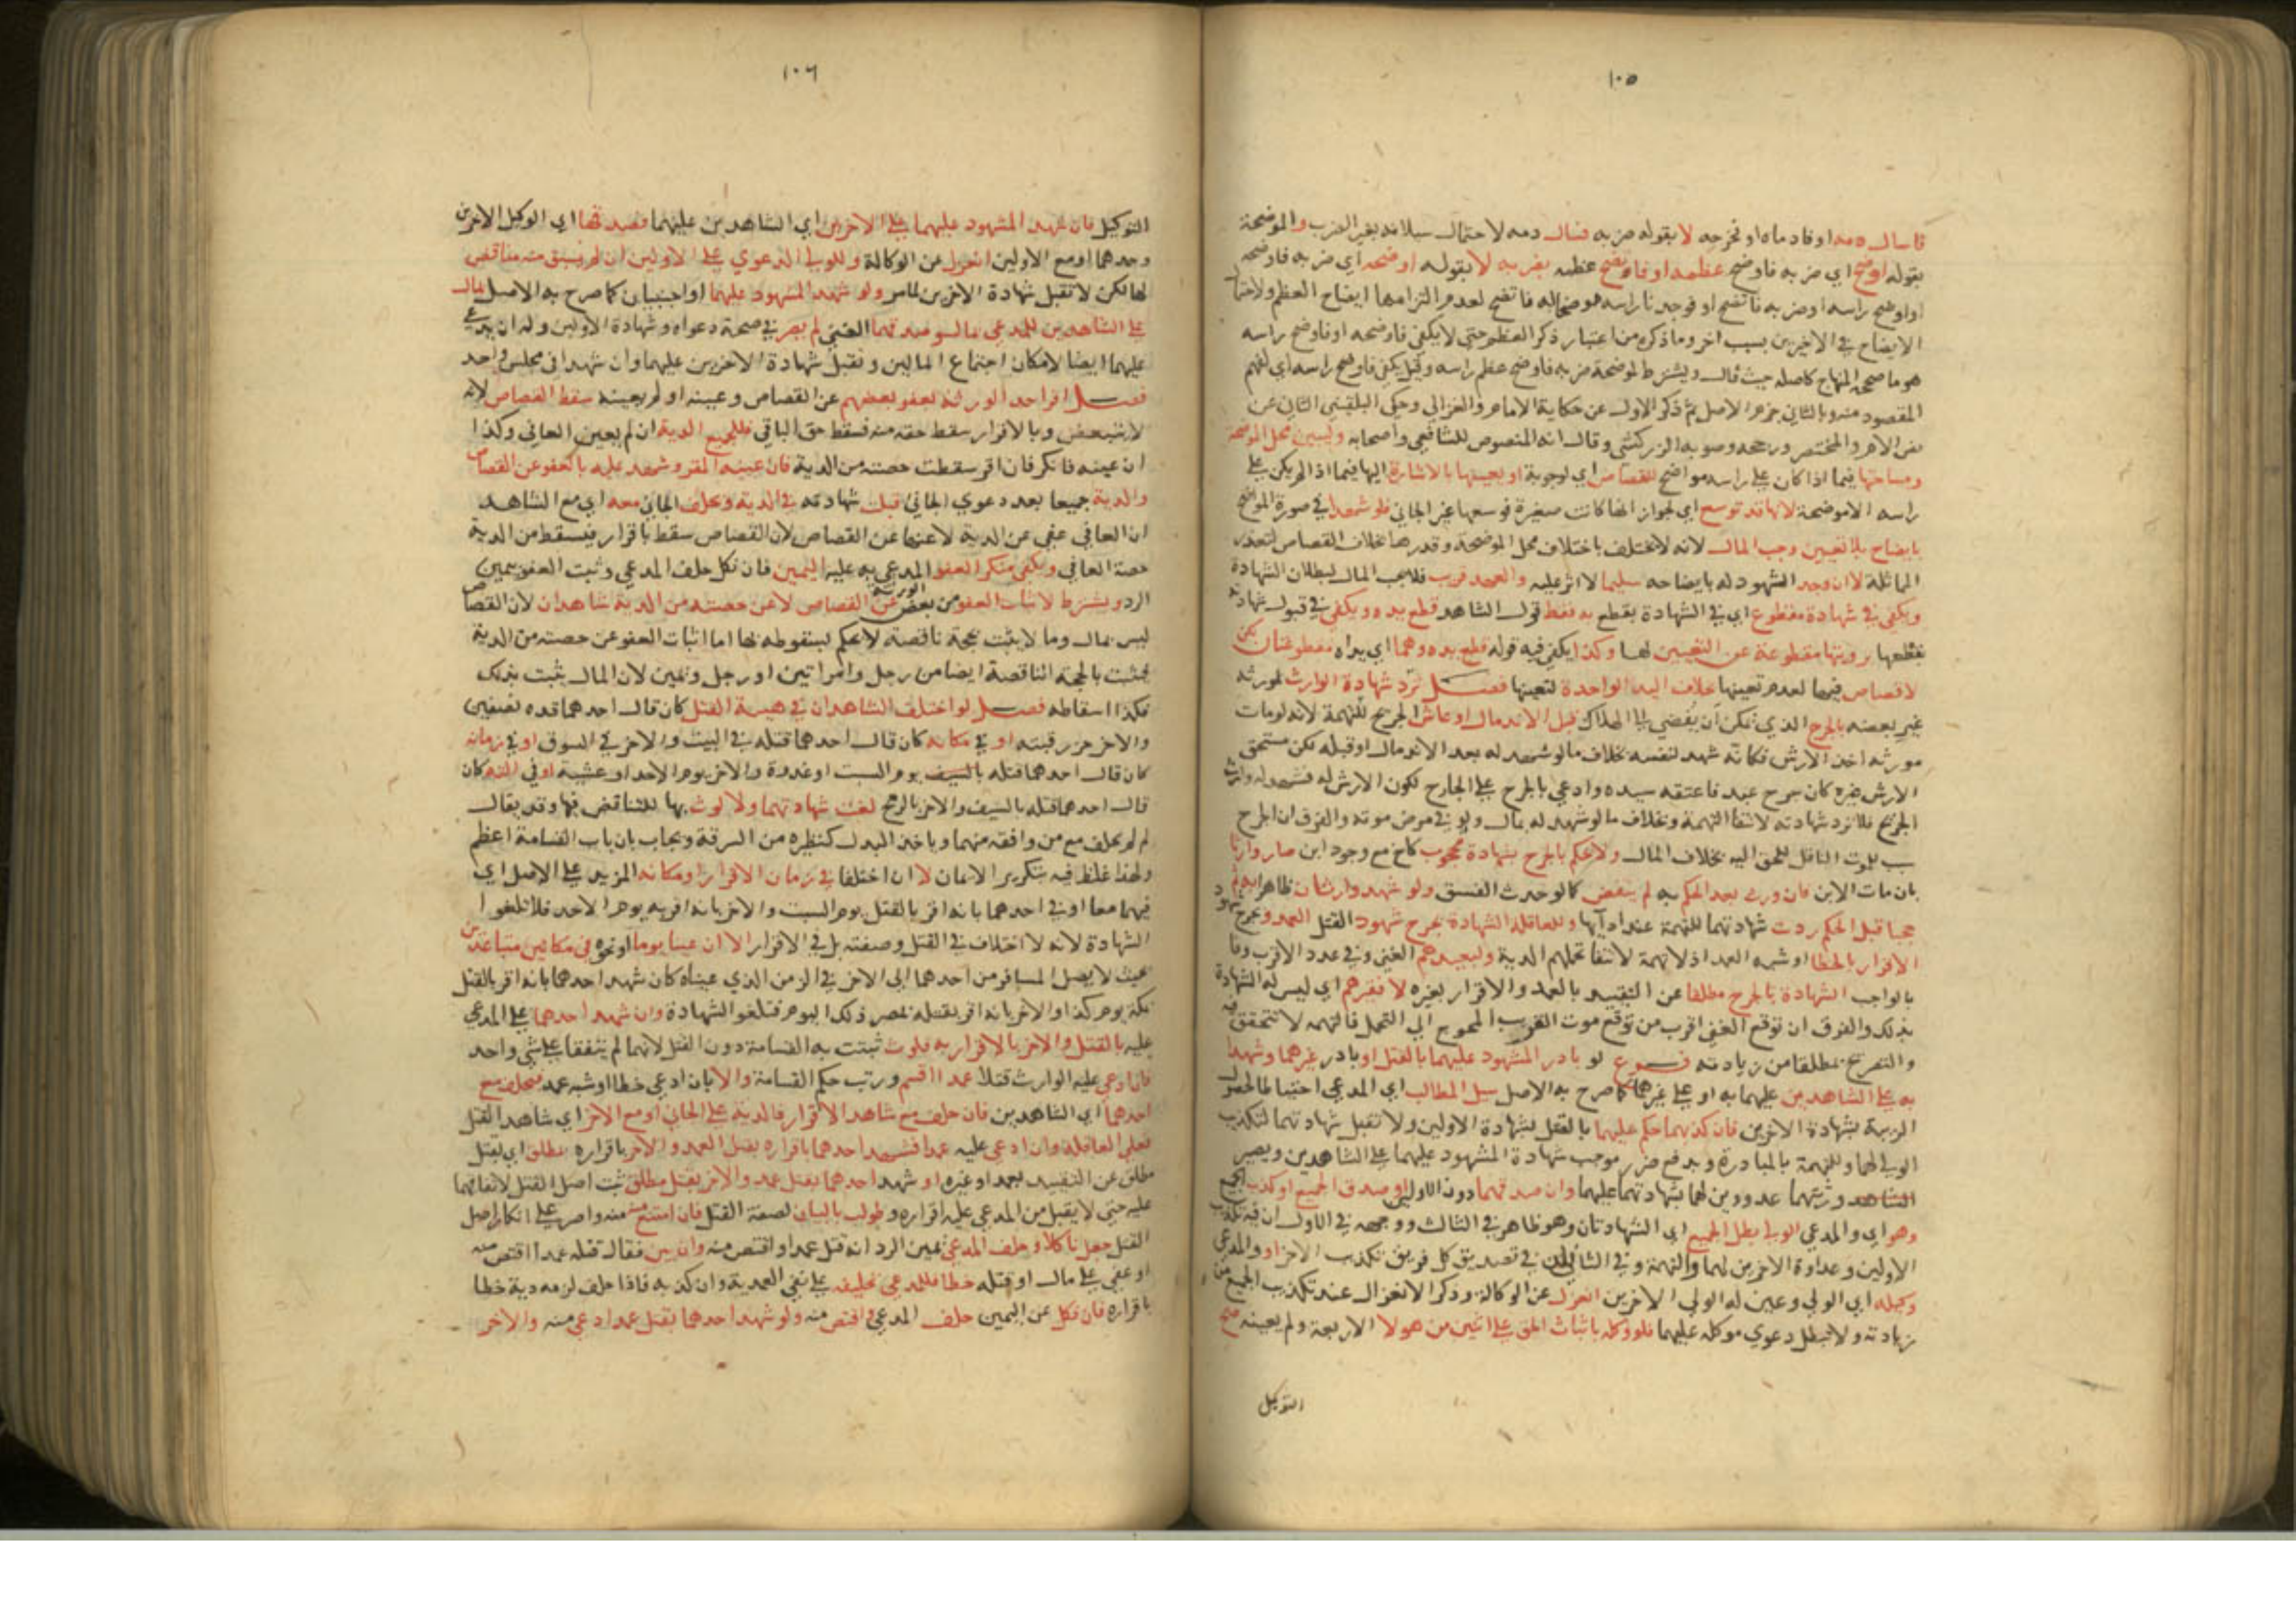 ١٠٥
فاسال دمه او فادماه او نحوحه لا بقوله ضربه فسال دمه لاحتمال سيلانه بغير الضرب والموضحة
بقوله اوضح اي ضربه فاوضح عظمه او فاتضح عظمه بضربه لا بقوله اوضحه اي ضربه فاوضحه
او اوضح راسه او ضربه فاتضح او فوجدنا راسه موضحا له فاتضح لعدم التزامها ايضاح العظم ولاحتمال
الايضاح في الاخيرين بسبب اخر وما ذكره من اعتبار ذكر العظم حتى لا يكفي فاوضحه او فاوضح راسه
هو ما صححه المنهاج كاصله حيث قال ويشترط لموضحة ضربه فاوضح عظم راسه وقيل يكفي فاوضح راسه اي لفهم
المقصود منه وبالثاني جزم الاصل ثم ذكر الاول عن حكاية الامام والغزالي وحكي البلقيني الثاني عن
نص الام والمختصر ورجحه وصوبه الزركشي وقال انه المنصوص للشافعي واصحابه وليبين محل الموضحة
ومساحتها فيما اذا كان على راسه مواضح للقصاص اي لوجوبه او يعينها بالاشارة اليها فيما اذا لم يكن على
راسه الا موضحة لانها قد توسع اي لجواز انها كانت صغيرة فوسعها غير الجاني فلو شهدا في صورة المواضح
بايضاح بلا تعيين وجب المال لانه لا يختلف باختلاف محل الموضحة وقدرها بخلاف القصاص لتعذر
المماثلة لا ان وجد المشهود له بايضاحه سليما لا اثر عليه والعهد قريب فلا يجب المال لبطلان الشهادة
ويكفي في شهادة مقطوع اي في الشهادة بقطع يده فقط قول الشاهد قطع يده ويكفي في قبول شهادته
بقطعها رويتها مقطوعة عن التعيين لها وكذا يكفي فيه قوله قطع يده وهما اي يداه مقطوعتان لكن
لا قصاص فيهما لعدم تعينها بخلاف اليد الواحدة لتعينها فصل ترد شهادة الوارث لمورثه
غير بعضه بالجرح الذي يمكن ان يفضي الى الهلاك قبل الاندمال او عاش الجريح للتهمة لانه لو مات
مورثه اخذ الارش فكانه شهد لنفسه بخلاف ما لو شهد له بعد الاندمال او قبله لكن مستحق
الارش غيره كان جرح عبد فاعتقه سيده وادعي بالجرح على الجارح لكون الارش له فشهد له وارث
الجريح فلا ترد شهادته لانتفا التهمة وبخلاف ما لو شهد له بمال ولو في مرض موته والفرق ان الجرح
سبب للموت الناقل للحق اليه بخلاف المال ولا حكم بالجرح بشهادة محجوب كاخ مع وجود ابن صار وارثا
بان مات الابن فان ورث بعد الحكم به لم ينقض كما لو حدث الفسق ولو شهد وارثان ظاهرا ثم
حجبا قبل الحكم ردت شهادتهما للتهمة عند ادائها وللعاقلة الشهادة بجرح شهود القتل العمد وبجرح شهود
الاقرار بالخطا او شبه العمد اذ لا تهمة لانتفا تحملهم الدية ولبعيدهم الغني وفي عدد الاقرب وفا
بالواجب الشهادة بالجرح مطلقا عن التقييد بالعمد والاقرار بغيره لا فقيرهم اي ليس له الشهادة
بذلك والفرق ان توقع الغني اقرب من توقع موت القريب المحوج الى التحمل فالتهمة لا تتحقق فيه
والتصريح بمطلقا من زيادته فرع لو بادر المشهود عليهما بالقتل او بادر غيرهما وشهدا
به على الشاهدين عليهما به او على غيرهما كما صرح به الاصل سيل المطالب اي المدعي احتياطا لحصول
الريبة بشهادة الاخرين فان كذبهما حكم عليهما بالقتل بشهادة الاولين ولا تقبل شهادتهما لتكذيب
الولي لهما وللتهمة بالمبادرة وبدفع ضرر موجب شهادة المشهود عليهما على الشاهدين ويصير
الشاهد ورثتهما عدوين لهما بشهادتهما عليهما وان صدقهما دون الاولين او صدق الجميع او كذب الجميع
وهو اي والمدعي الولي بطل الجميع اي الشهادتان وهو ظاهر في الثالث ووجهه في الاول ان فيه تكذيب
الاولين وعداوة الاخرين لهما والتهمة وفي الثاني ان في تصديق كل فريق تكذيب الاخر او والمدعي
وكيله اي الولي وعين له الولي الاخرين انعزل عن الوكالة وذكر الانعزال عند تكذيب الجميع من
زيادته ولا تبطل دعوي موكله عليهما فلو وكله باثبات الحق على اثنين من هولا الاربعة ولم يعينه صح
التوكيل
١٠٦
التوكيل فان شهد المشهود عليهما على الاخرين اي الشاهدين عليهما فصدقهما اي الوكيل الاخرين
وحدهما او مع الاولين انعزل عن الوكالة وللولي الدعوي على الاولين ان لم يسبق منه مناقض
لها لكن لا تقبل شهادة الاخرين لما مر ولو شهد المشهود عليهما او اجنبيان كما صرح به الاصل بمال
على الشاهدين للمدعي مال لو صدقهما الغني لم يضر في صحة دعواه وشهادة الاولين وله ان يدعي
عليهما ايضا لامكان اجتماع المالين وتقبل شهادة الاخرين عليهما وان شهدا في مجلس واحد
فصل اقر احد الورثة بعفو بعضهم عن القصاص وعينه او لم يعينه سقط القصاص لانه
لا يتبعض وبالاقرار سقط حقه منه فسقط حق الباقي فللجميع الدية ان لم يعين العافي وكذا
ان عينه فانكر فان اقر سقطت حصته من الدية فان عينه المقر وشهد عليه بالعفو عن القصاص
والدية جميعا بعد دعوي الجاني قبلت شهادته في الدية ويحلف الجاني معه اي مع الشاهد
ان العافي عفي عن الدية لا عنها عن القصاص لان القصاص سقط باقرار فيسقط من الدية
حصة العافي ويكفي منكر العفو المدعي به عليه اليمين فان نكل حلف المدعي وثبت العفو بيمين
الرد ويشترط لاثبات العفو من بعض الورثة عن القصاص لا عن حصته من الدية شاهدان لان القصاص
ليس بمال وما لا يثبت بحجة ناقصة لا يحكم بسقوطه بها اما اثبات العفو عن حصته من الدية
فيثبت بالحجة الناقصة ايضا من رجل وامراتين او رجل ويمين لان المال يثبت بذلك
فكذا اسقاطه فصل لو اختلف الشاهدان في هيئة القتل كان قال احدهما قده نصفين
والاخر حز رقبته او في مكانه كان قال احدهما قتله في البيت والاخر في السوق او في زمانه
كان قال احدهما قتله بالسيف يوم السبت او غدوة والاخر يوم الاحد او عشية او في الته كان
قال احدهما قتله بالسيف والاخر بالرمح لغت شهادتهما ولا لوث بها للتناقض فيها وقد يقال
لم لم يحلف مع من وافقه منهما وياخذ البدل كنظيره من السرقة ويجاب بان باب القسامة اعظم
ولهذا غلظ فيه بتكرير الايمان لا ان اختلفا في زمان الاقرار او مكانه المزيد على الاصل اي
فيهما معا او في احدهما بانه اقر بالقتل يوم السبت والاخر بانه اقر به يوم الاحد فلا تلغوا
الشهادة لانه لا اختلاف في القتل وصفته بل في الاقرار الا ان عينا يوما او نحوه في مكانين متباعدين
بحيث لا يصل المسافر من احدهما الى الاخر في الزمن الذي عيناه كان شهد احدهما بانه اقر بالقتل
بمكة يوم كذا والاخر بانه اقر بقتله بمصر ذلك اليوم فتلغو الشهادة وان شهد احدهما على المدعي
عليه بالقتل والاخر بالاقرار به فلوث ثبتت به القسامة دون القتل لانهما لم يتفقا على شي واحد
فان ادعي عليه الوارث قتلا عمدا اقسم ورتب حكم القسامة والا بان ادعي خطا او شبه عمد فيحلف مع
احدهما اي الشاهدين فان حلف مع شاهد الاقرار فالدية على الجاني او مع الاخر اي شاهد القتل
فعلى العاقلة وان ادعي عليه عمدا فشهد احدهما باقراره بقتل العمد والاخر باقراره بمطلق اي بقتل
مطلق عن التقييد بعمد او غيره او شهد احدهما بقتل عمد والاخر بقتل مطلق ثبت اصل القتل لاتفاقهما
عليه حتى لا يقبل من المدعي عليه اقراره وطولب بالبيان لصفة القتل فان امتنع منه واصر على انكار اصل
القتل جعل ناكلا وحلف المدعي يمين الرد انه قتل عمدا واقتص منه وان بين فقال قتله عمدا اقتص منه
او عفي على مال او قتله خطا فللمدعي تحليفه على نفي العمدية وان كذبه فاذا حلف لزمه دية خطا
باقراره فان نكل عن اليمين حلف المدعي واقتص منه ولو شهد احدهما بقتل عمد ادعي منه والاخر